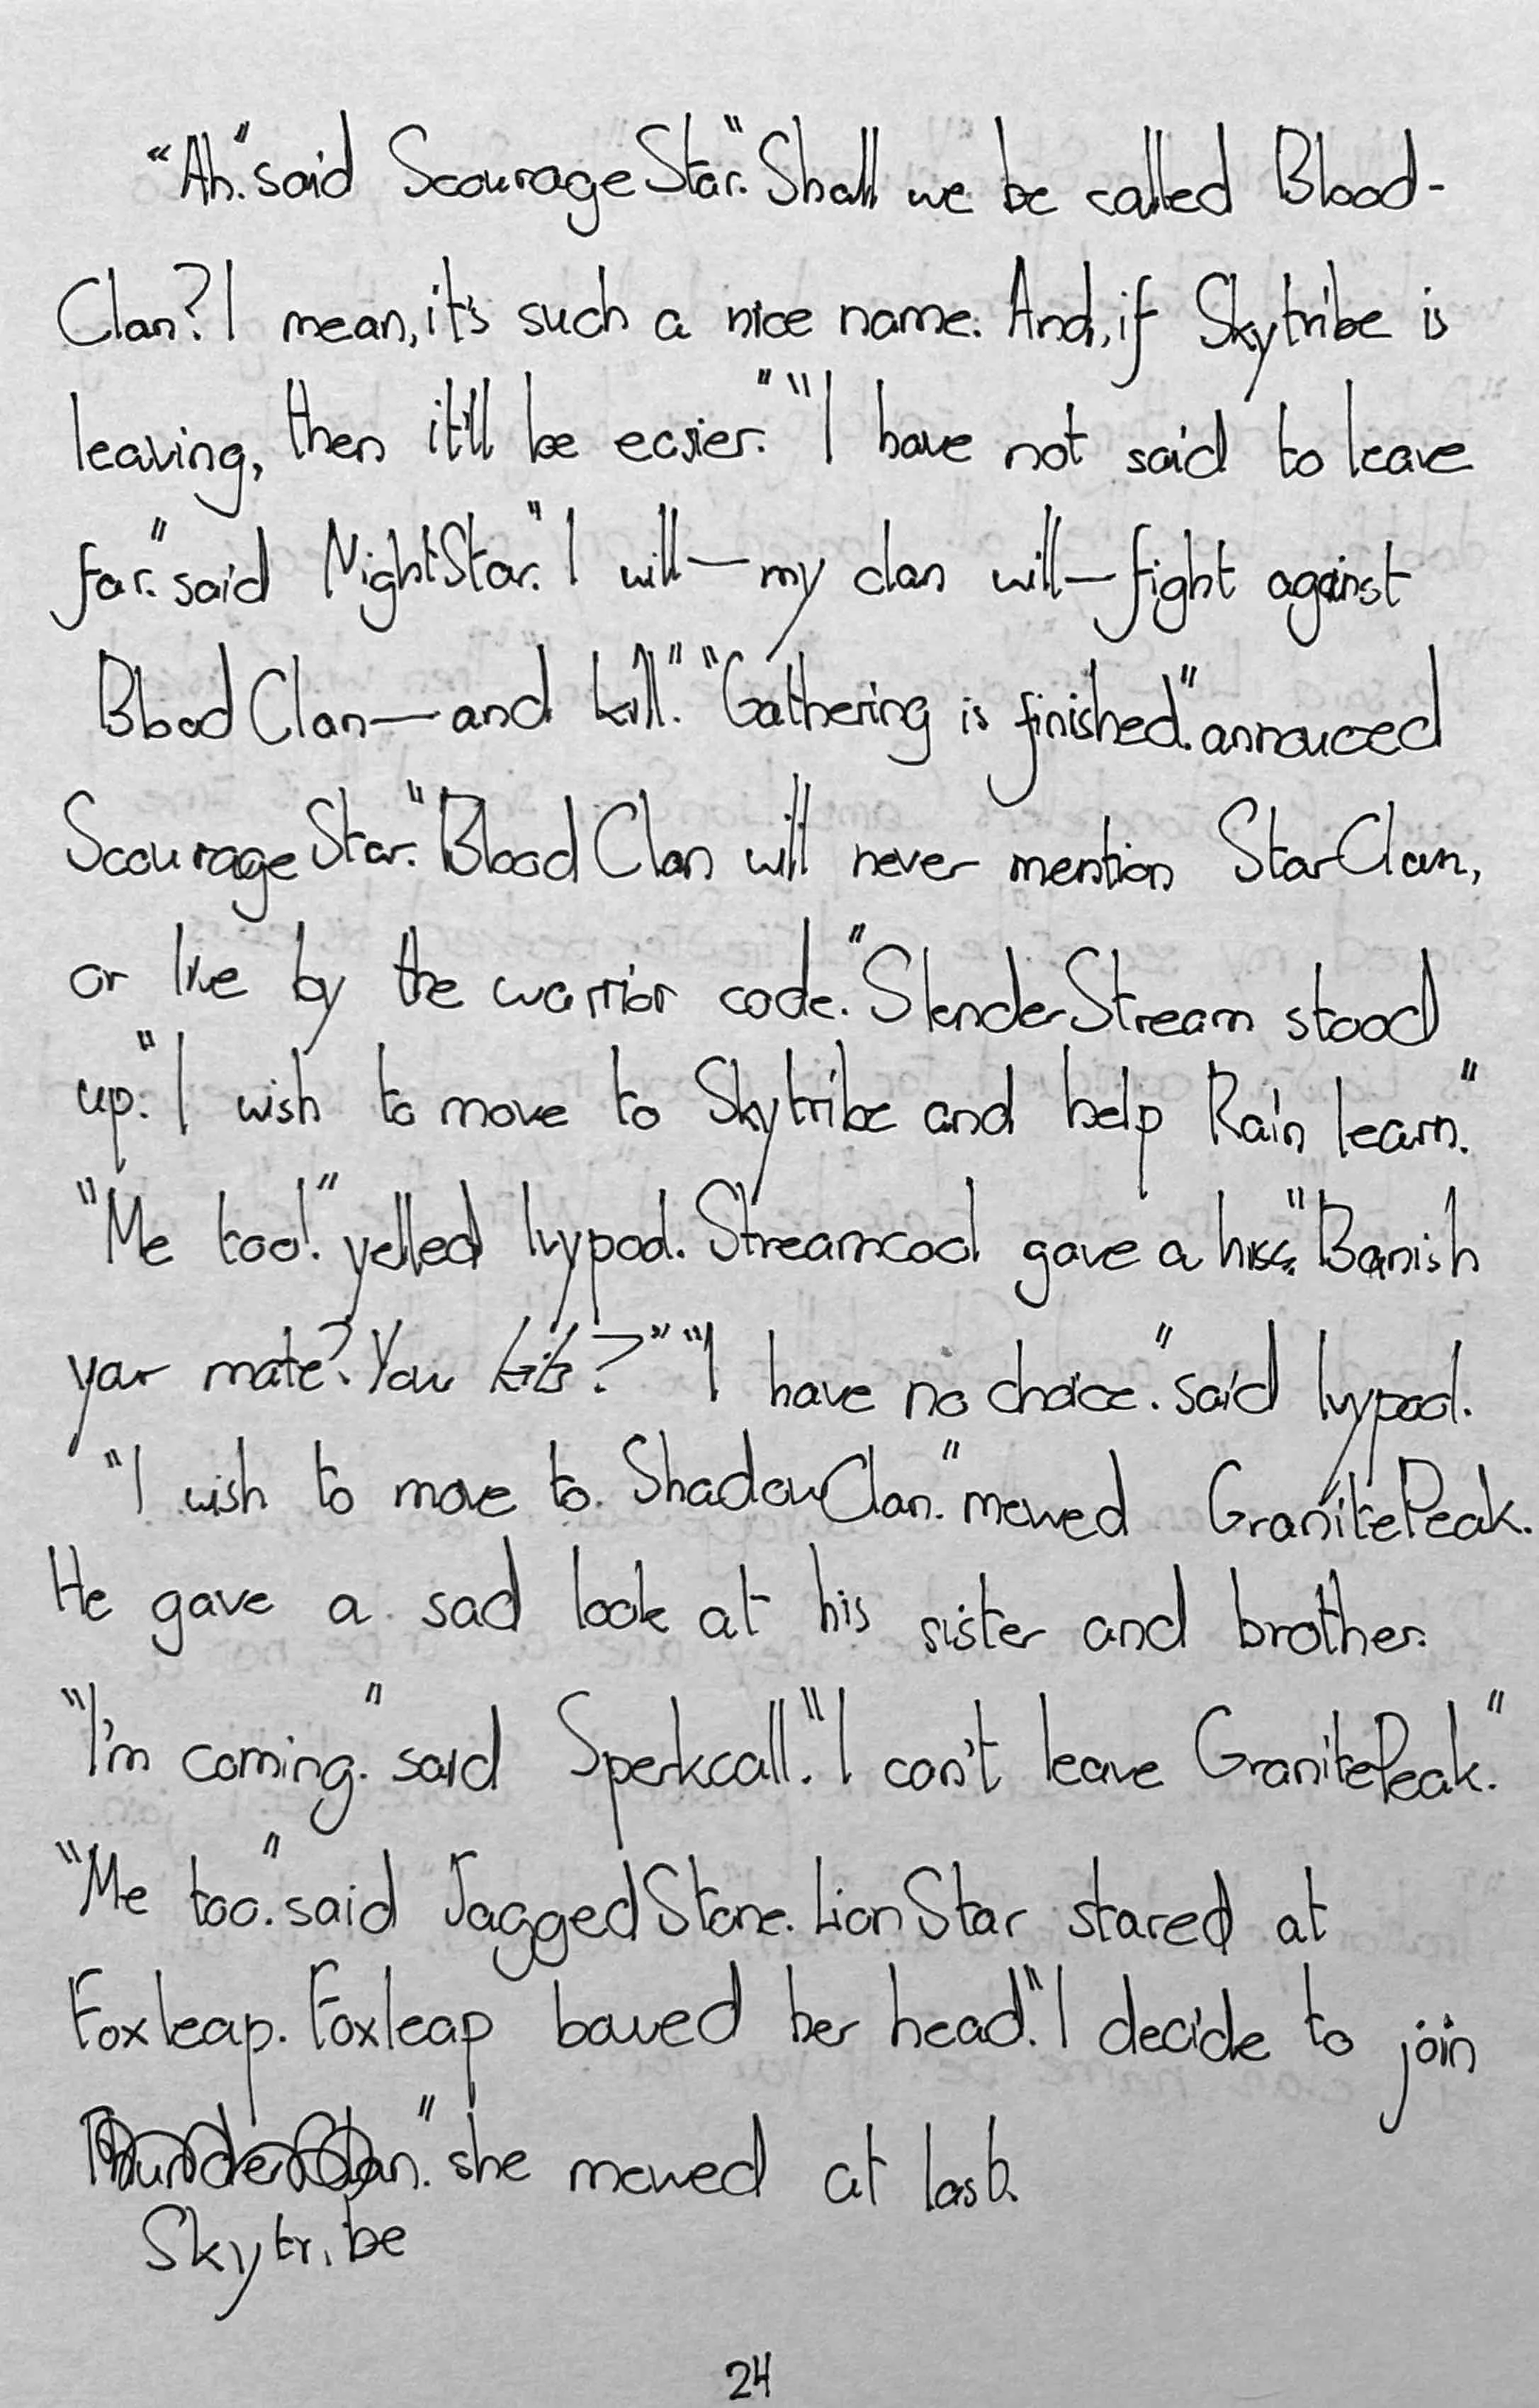 "Ah." said ScourageStar. "Shall we be called Blood-
Clan? I mean, it's such a nice name. And, if Skytribe is
leaving, then it'll be easier." "I have not said to leave
far." said NightStar. "I will—my clan will—fight against
BloodClan—and kill." "Gathering is finished." annouced
ScourageStar. "BloodClan will never mention StarClan,
or live by the warrior code." SlenderStream stood
up. "I wish to move to Skytribe and help Rain learn."
"Me too!" yelled Ivypool. Streamcool gave a hiss. "Banish
your mate? Your kits?" "I have no choice." said Ivypool.
"I wish to move to ShadowClan." mewed GranitePeak.
He gave a sad look at his sister and brother.
"I'm coming." said Sperkcall. "I can't leave GranitePeak."
"Me too." said JaggedStone. LionStar stared at
Foxleap. Foxleap bowed her head. "I decide to join
ThunderClan." she mewed at last.
Skytribe
24